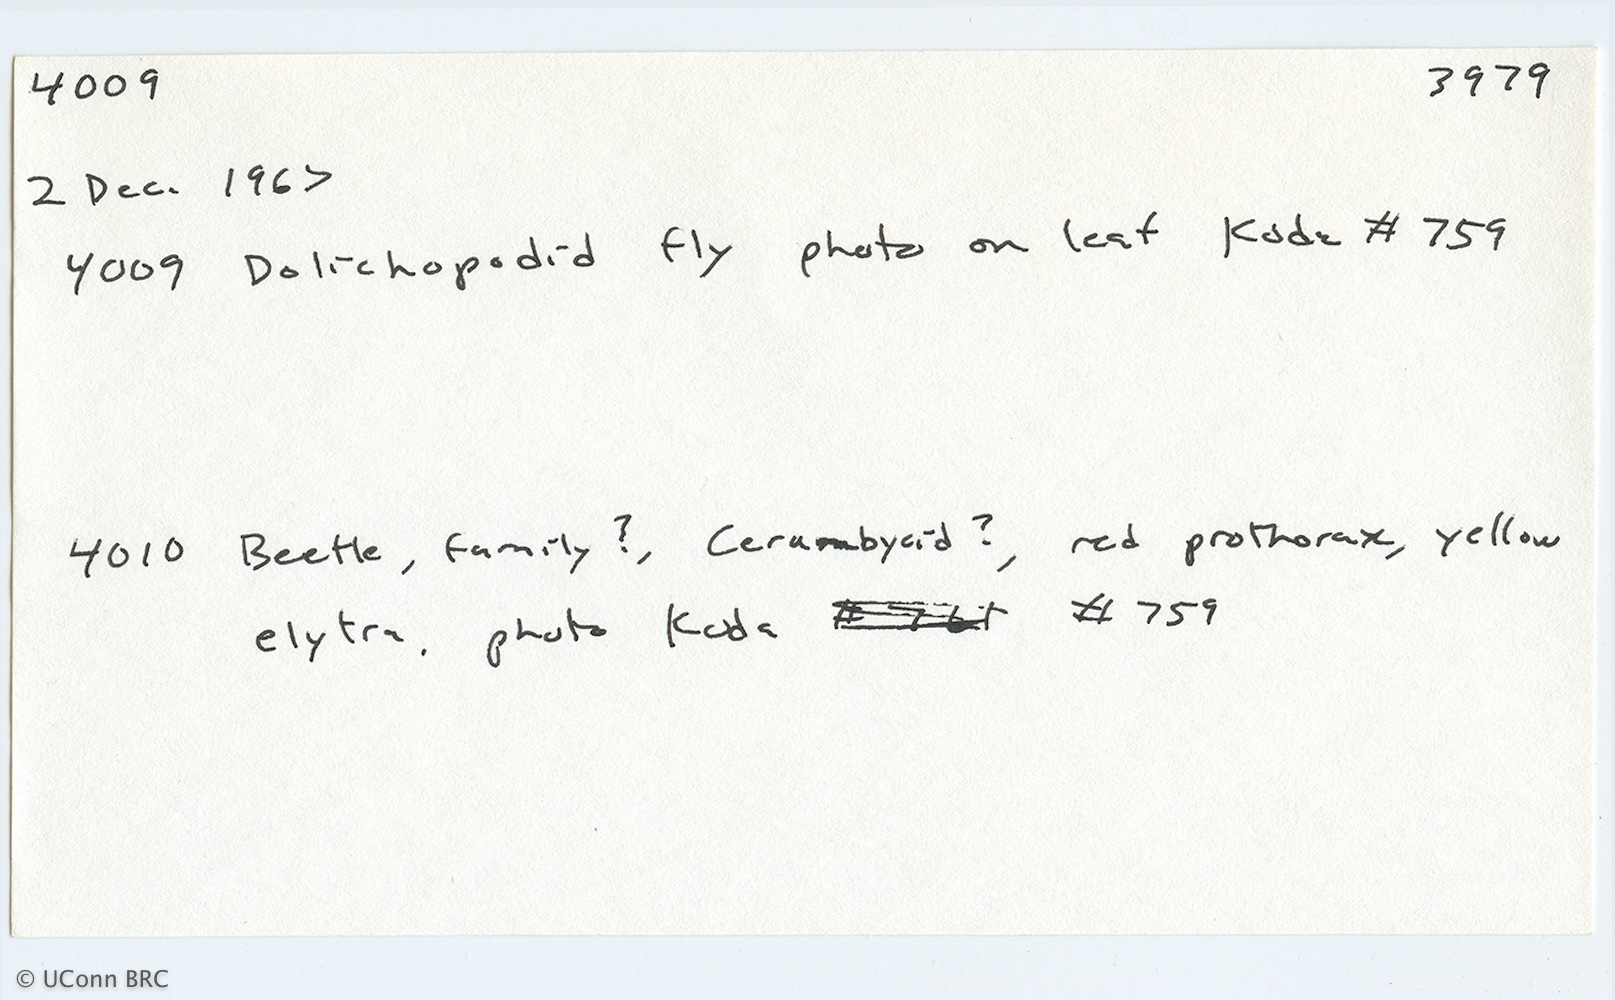 4009 3979
2 Dec. 1967
4009 Dolichopodid fly photo on leaf Koda # 759
4010 Beetle, family?, Cerambycid?, red prothorax, yellow
elytra. photo Koda # 759
© UConn BRC